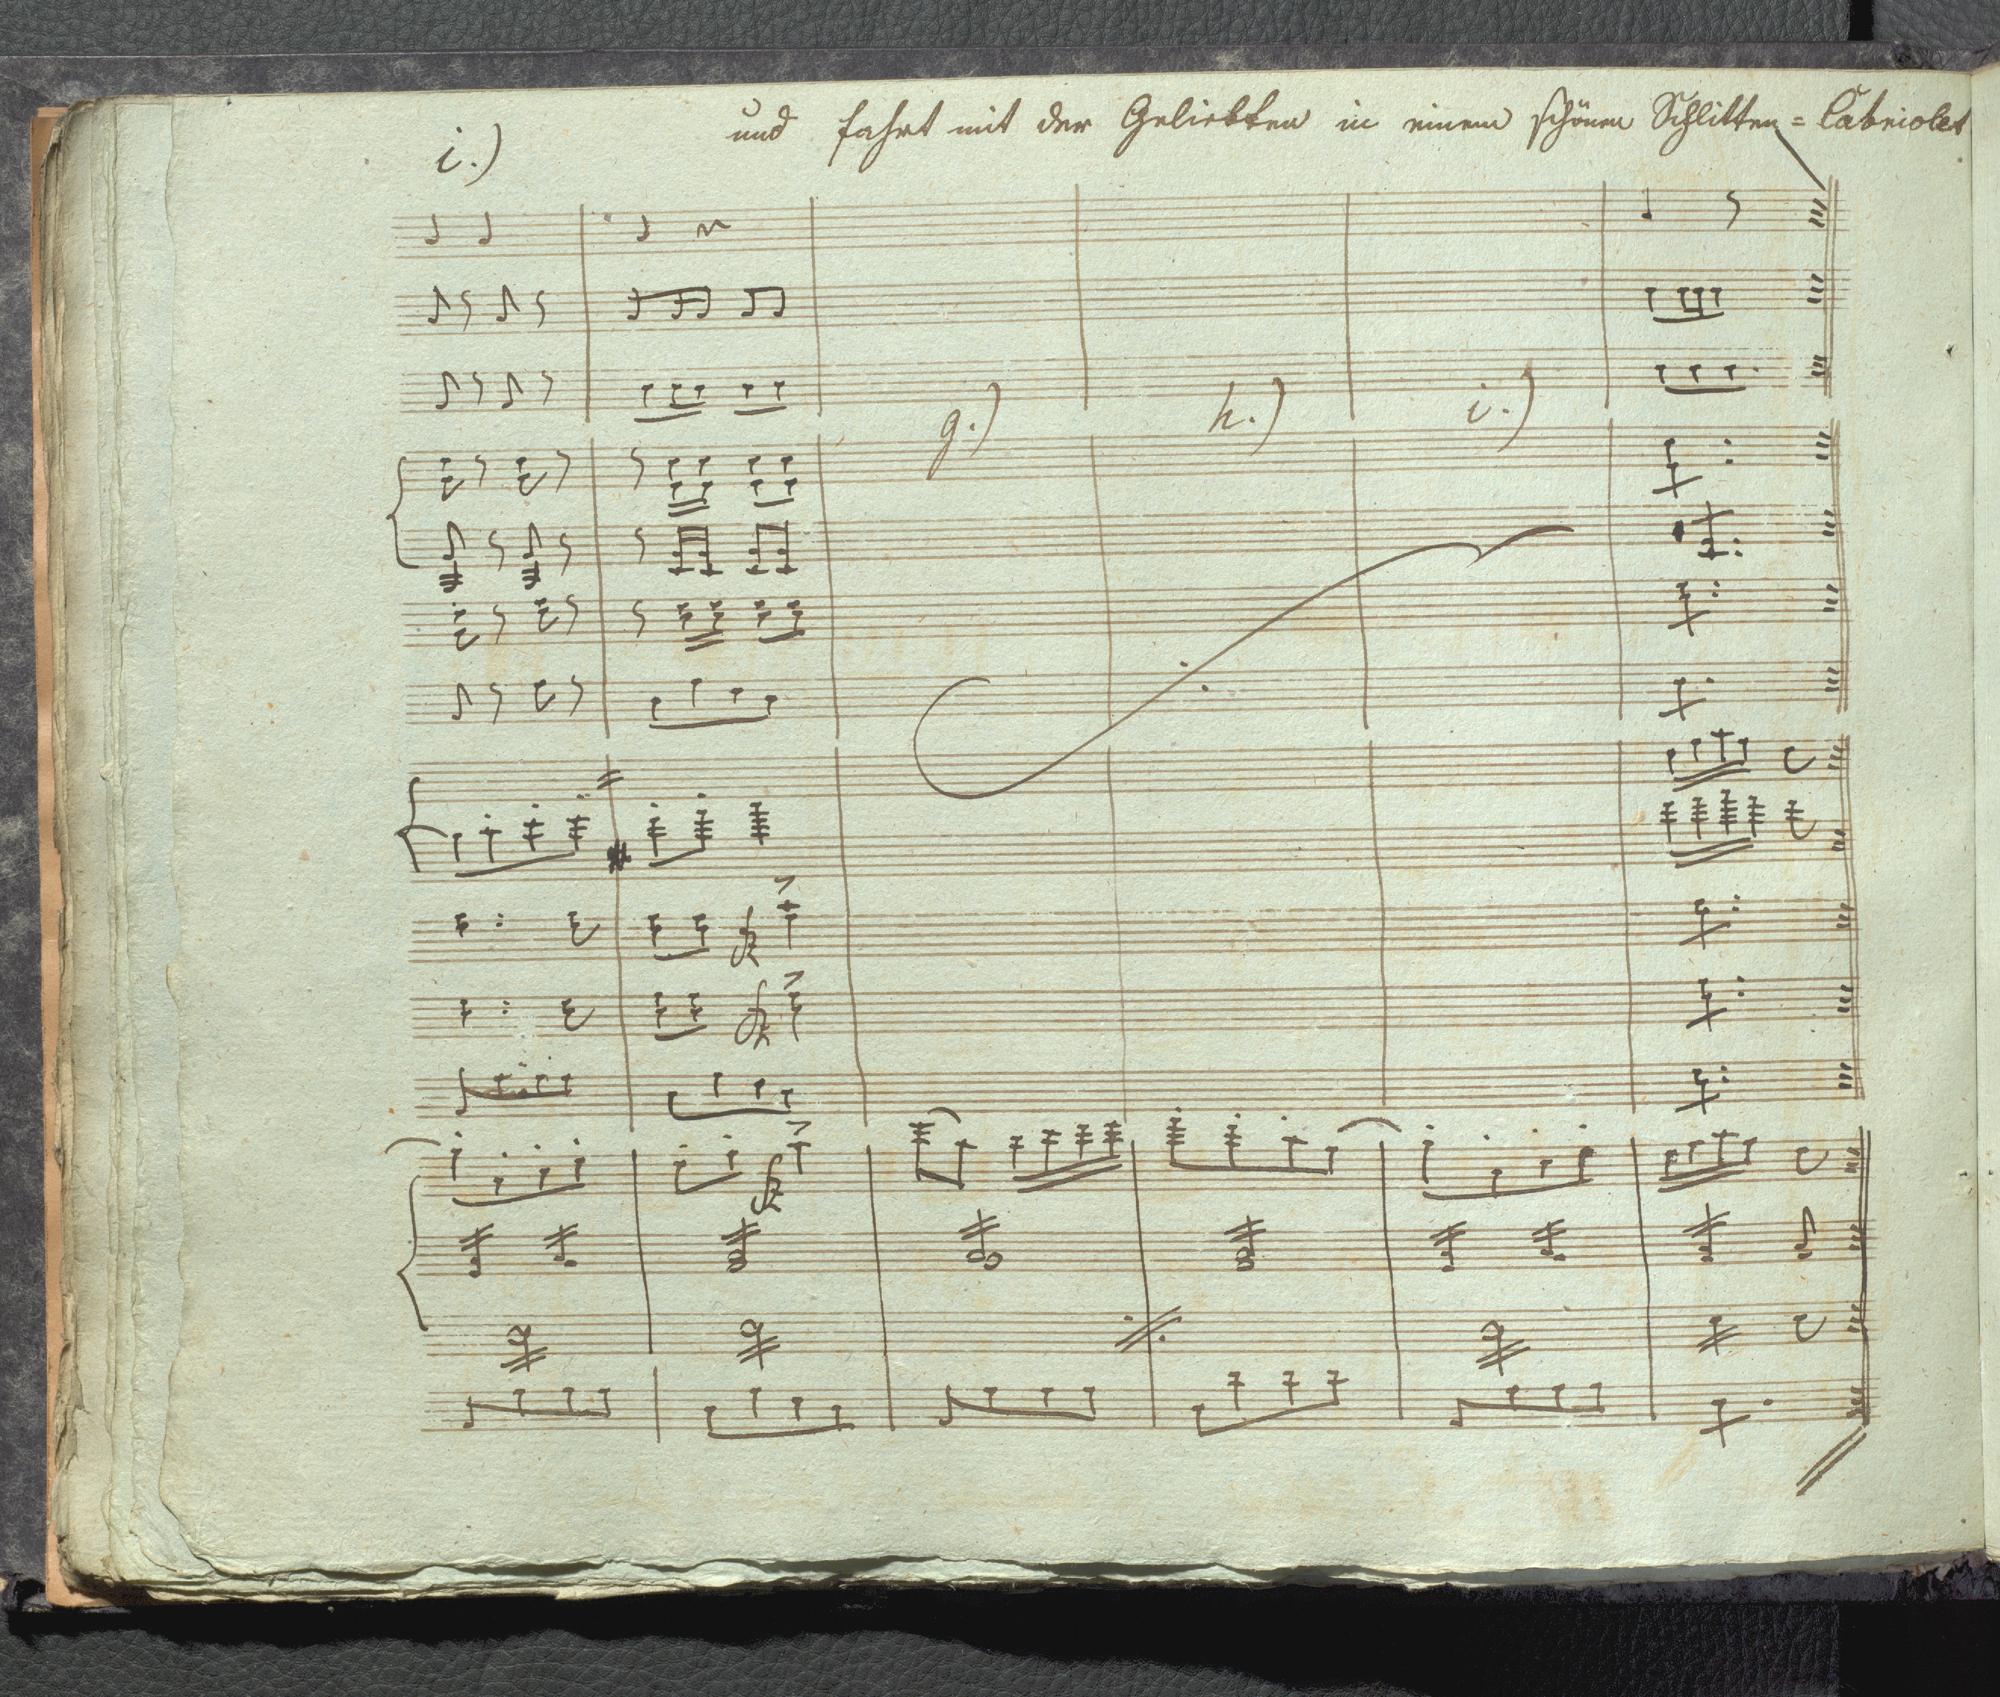 und fahrt mit der Geliebten in einem schönen Schlitten = Cabriolet
i.)
g.) h.) i.)
fz
fz
fz